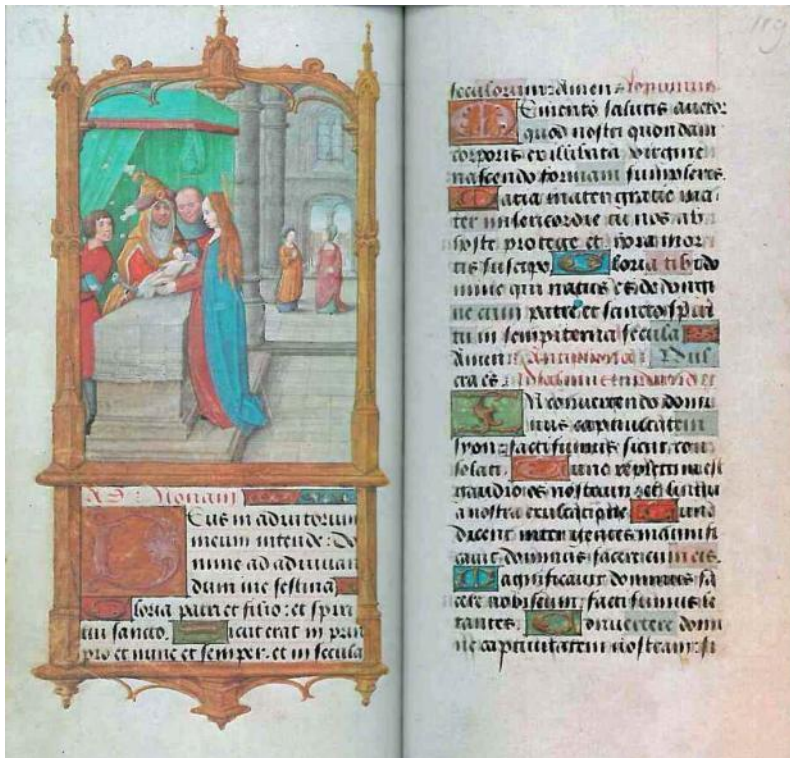 Ad Nonam
Deus in adiutorium
meum intende: Do
mine ad adiuuan
dum me festina
Gloria patri et filio: et spiri
tui sancto. Sicut erat in prin
pio et nunc et semper. et in secula
119
seculorum: Amen. Hymnus
Memento salutis auctor
quod nostri quondam
corporis ex illibata virgine
nascendo formam sumpseris.
Maria mater gratie ma
ter misericordie tu nos ab
hoste protege et hora mor
tis suscipe. Gloria tibi do
mine qui natus es de virgi
ne cum patre et sancto spiri
tu in sempiterna secula
Amen. Antiphona. Pul
cra es.
In conuertendo domi
nus captiuitatem
syon: facti sumus sicut con
solati. Tunc repletum est
gaudio os nostrum: et lingua
nostra exultatione. Tunc
dicent inter gentes magnifi
cauit dominus facere cum eis.
Magnificauit dominus fa
cere nobiscum: facti sumus le
tantes. Conuertere domi
ne captiuitatem nostram: si